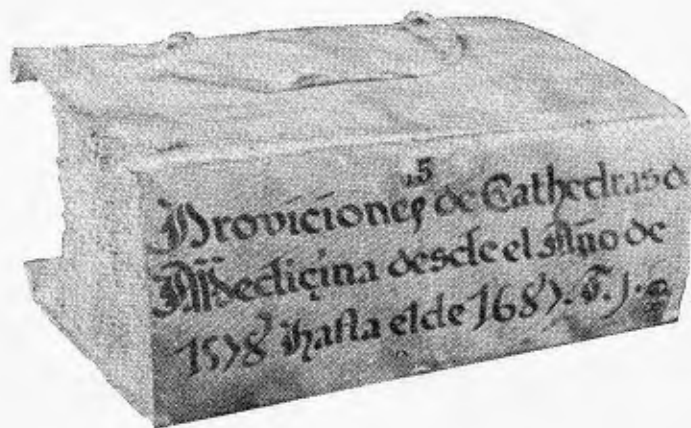 .5
Proviciones de Cathedras d
Medicina desde el Año de
1578 hasta el de 1687. T. j.